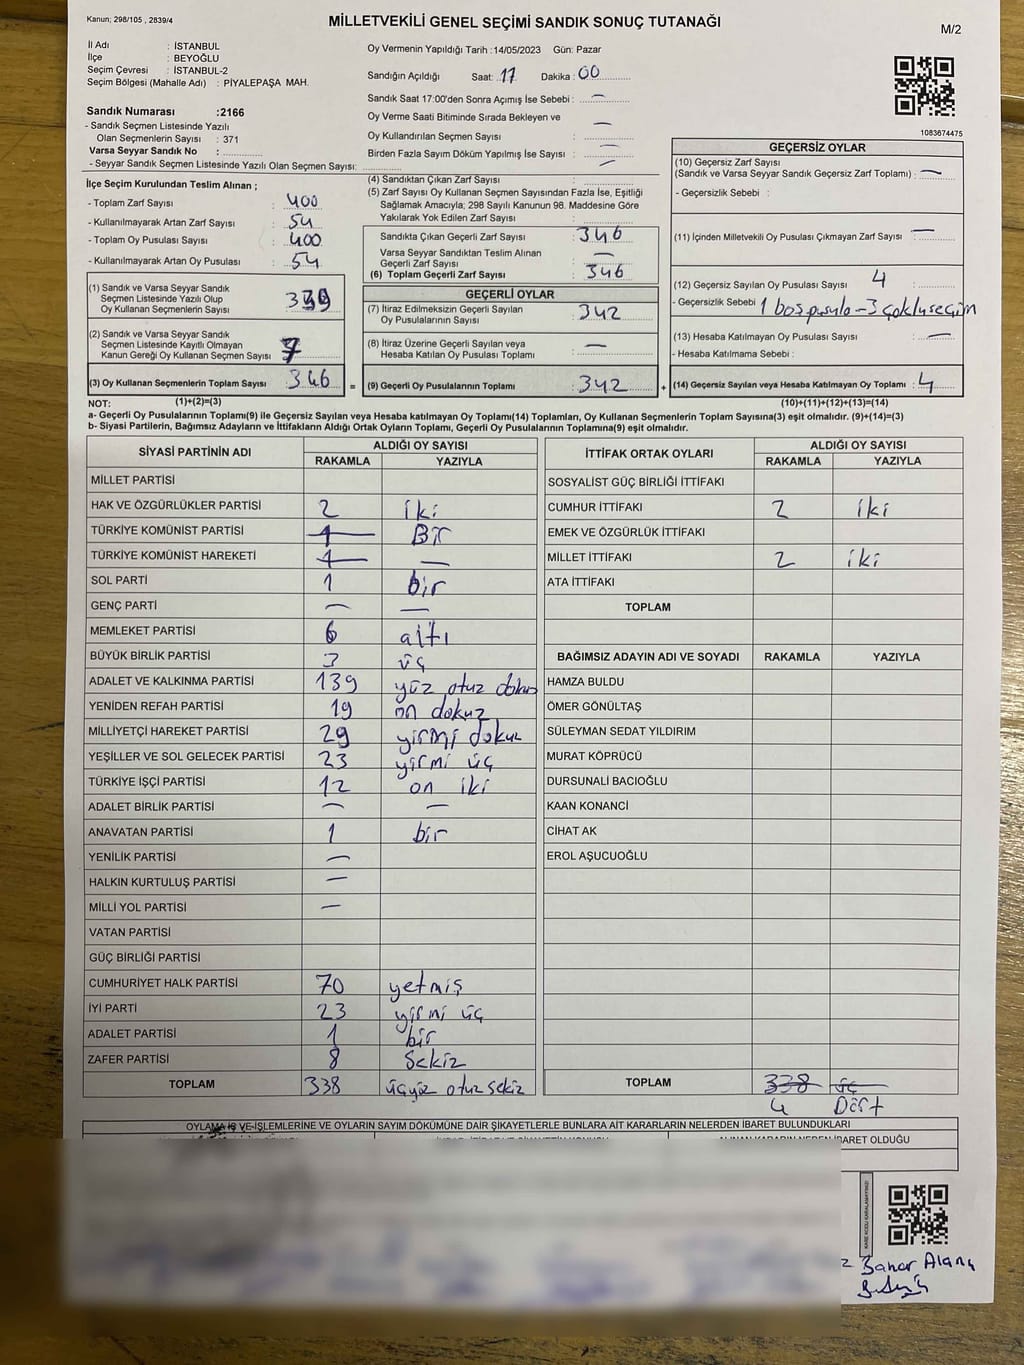 Kanun; 298/105 , 2839/4
MİLLETVEKİLİ GENEL SEÇİMİ SANDIK SONUÇ TUTANAĞI
M/2
İl Adı : İSTANBUL
İlçe : BEYOĞLU
Seçim Çevresi : İSTANBUL-2
Seçim Bölgesi (Mahalle Adı) : PİYALEPAŞA MAH.
Sandık Numarası :2166
- Sandık Seçmen Listesinde Yazılı
Olan Seçmenlerin Sayısı : 371
Varsa Seyyar Sandık No :
- Seyyar Sandık Seçmen Listesinde Yazılı Olan Seçmen Sayısı:
Oy Vermenin Yapıldığı Tarih :14/05/2023 Gün: Pazar
Sandığın Açıldığı Saat: 17 Dakika : 00
Sandık Saat 17:00'den Sonra Açımış İse Sebebi : —
Oy Verme Saati Bitiminde Sırada Bekleyen ve
Oy Kullandırılan Seçmen Sayısı : —
Birden Fazla Sayım Döküm Yapılmış İse Sayısı : —
1083674475
İlçe Seçim Kurulundan Teslim Alınan ;
- Toplam Zarf Sayısı : 400
- Kullanılmayarak Artan Zarf Sayısı : 54
- Toplam Oy Pusulası Sayısı : 400
- Kullanılmayarak Artan Oy Pusulası : 54
(1) Sandık ve Varsa Seyyar Sandık
Seçmen Listesinde Yazılı Olup
Oy Kullanan Seçmenlerin Sayısı : 339
(2) Sandık ve Varsa Seyyar Sandık
Seçmen Listesinde Kayıtlı Olmayan
Kanun Gereği Oy Kullanan Seçmen Sayısı : 7
(3) Oy Kullanan Seçmenlerin Toplam Sayısı : 346
(4) Sandıktan Çıkan Zarf Sayısı : —
(5) Zarf Sayısı Oy Kullanan Seçmen Sayısından Fazla İse, Eşitliği
Sağlamak Amacıyla; 298 Sayılı Kanunun 98. Maddesine Göre
Yakılarak Yok Edilen Zarf Sayısı :
Sandıkta Çıkan Geçerli Zarf Sayısı : 346
Varsa Seyyar Sandıktan Teslim Alınan
Geçerli Zarf Sayısı : —
(6) Toplam Geçerli Zarf Sayısı : 346
GEÇERLİ OYLAR
(7) İtiraz Edilmeksizin Geçerli Sayılan
Oy Pusulalarının Sayısı : 342
(8) İtiraz Üzerine Geçerli Sayılan veya
Hesaba Katılan Oy Pusulası Toplamı : —
= (9) Geçerli Oy Pusulalarının Toplamı : 342
GEÇERSİZ OYLAR
(10) Geçersiz Zarf Sayısı
(Sandık ve Varsa Seyyar Sandık Geçersiz Zarf Toplamı) : —
- Geçersizlik Sebebi :
(11) İçinden Milletvekili Oy Pusulası Çıkmayan Zarf Sayısı : —
(12) Geçersiz Sayılan Oy Pusulası Sayısı : 4
- Geçersizlik Sebebi : 1 boş pusula - 3 çoklu seçim
(13) Hesaba Katılmayan Oy Pusulası Sayısı : —
- Hesaba Katılmama Sebebi :
+ (14) Geçersiz Sayılan veya Hesaba Katılmayan Oy Toplamı : 4
NOT: (1)+(2)=(3)
(10)+(11)+(12)+(13)=(14)
a- Geçerli Oy Pusulalarının Toplamı(9) ile Geçersiz Sayılan veya Hesaba katılmayan Oy Toplamı(14) Toplamları, Oy Kullanan Seçmenlerin Toplam Sayısına(3) eşit olmalıdır. (9)+(14)=(3)
b- Siyasi Partilerin, Bağımsız Adayların ve İttifakların Aldığı Ortak Oyların Toplamı, Geçerli Oy Pusulalarının Toplamına(9) eşit olmalıdır.
SİYASİ PARTİNİN ADI ALDIĞI OY SAYISI
RAKAMLA YAZIYLA
MİLLET PARTİSİ
HAK VE ÖZGÜRLÜKLER PARTİSİ 2 iki
TÜRKİYE KOMÜNİST PARTİSİ 1 Bir
TÜRKİYE KOMÜNİST HAREKETİ 1 —
SOL PARTİ 1 bir
GENÇ PARTİ — —
MEMLEKET PARTİSİ 6 altı
BÜYÜK BİRLİK PARTİSİ 3 üç
ADALET VE KALKINMA PARTİSİ 139 yüz otuz dokuz
YENİDEN REFAH PARTİSİ 19 on dokuz
MİLLİYETÇİ HAREKET PARTİSİ 29 yirmi dokuz
YEŞİLLER VE SOL GELECEK PARTİSİ 23 yirmi üç
TÜRKİYE İŞÇİ PARTİSİ 12 on iki
ADALET BİRLİK PARTİSİ — —
ANAVATAN PARTİSİ 1 bir
YENİLİK PARTİSİ —
HALKIN KURTULUŞ PARTİSİ —
MİLLİ YOL PARTİSİ —
VATAN PARTİSİ
GÜÇ BİRLİĞİ PARTİSİ
CUMHURİYET HALK PARTİSİ 70 yetmiş
İYİ PARTİ 23 yirmi üç
ADALET PARTİSİ 1 bir
ZAFER PARTİSİ 8 Sekiz
TOPLAM 338 üçyüz otuz sekiz
İTTİFAK ORTAK OYLARI ALDIĞI OY SAYISI
RAKAMLA YAZIYLA
SOSYALİST GÜÇ BİRLİĞİ İTTİFAKI
CUMHUR İTTİFAKI 2 iki
EMEK VE ÖZGÜRLÜK İTTİFAKI
MİLLET İTTİFAKI 2 iki
ATA İTTİFAKI
TOPLAM
BAĞIMSIZ ADAYIN ADI VE SOYADI RAKAMLA YAZIYLA
HAMZA BULDU
ÖMER GÖNÜLTAŞ
SÜLEYMAN SEDAT YILDIRIM
MURAT KÖPRÜCÜ
DURSUNALİ BACIOĞLU
KAAN KONANCİ
CİHAT AK
EROL AŞUCUOĞLU
TOPLAM 338 üç
4 Dört
OYLAMA İŞ VE İŞLEMLERİNE VE OYLARIN SAYIM DÖKÜMÜNE DAİR ŞİKAYETLERLE BUNLARA AİT KARARLARIN NELERDEN İBARET BULUNDUKLARI
ALINAN KARARIN NEDEN İBARET OLDUĞU
KARE KODU KARALAMAYINIZ!